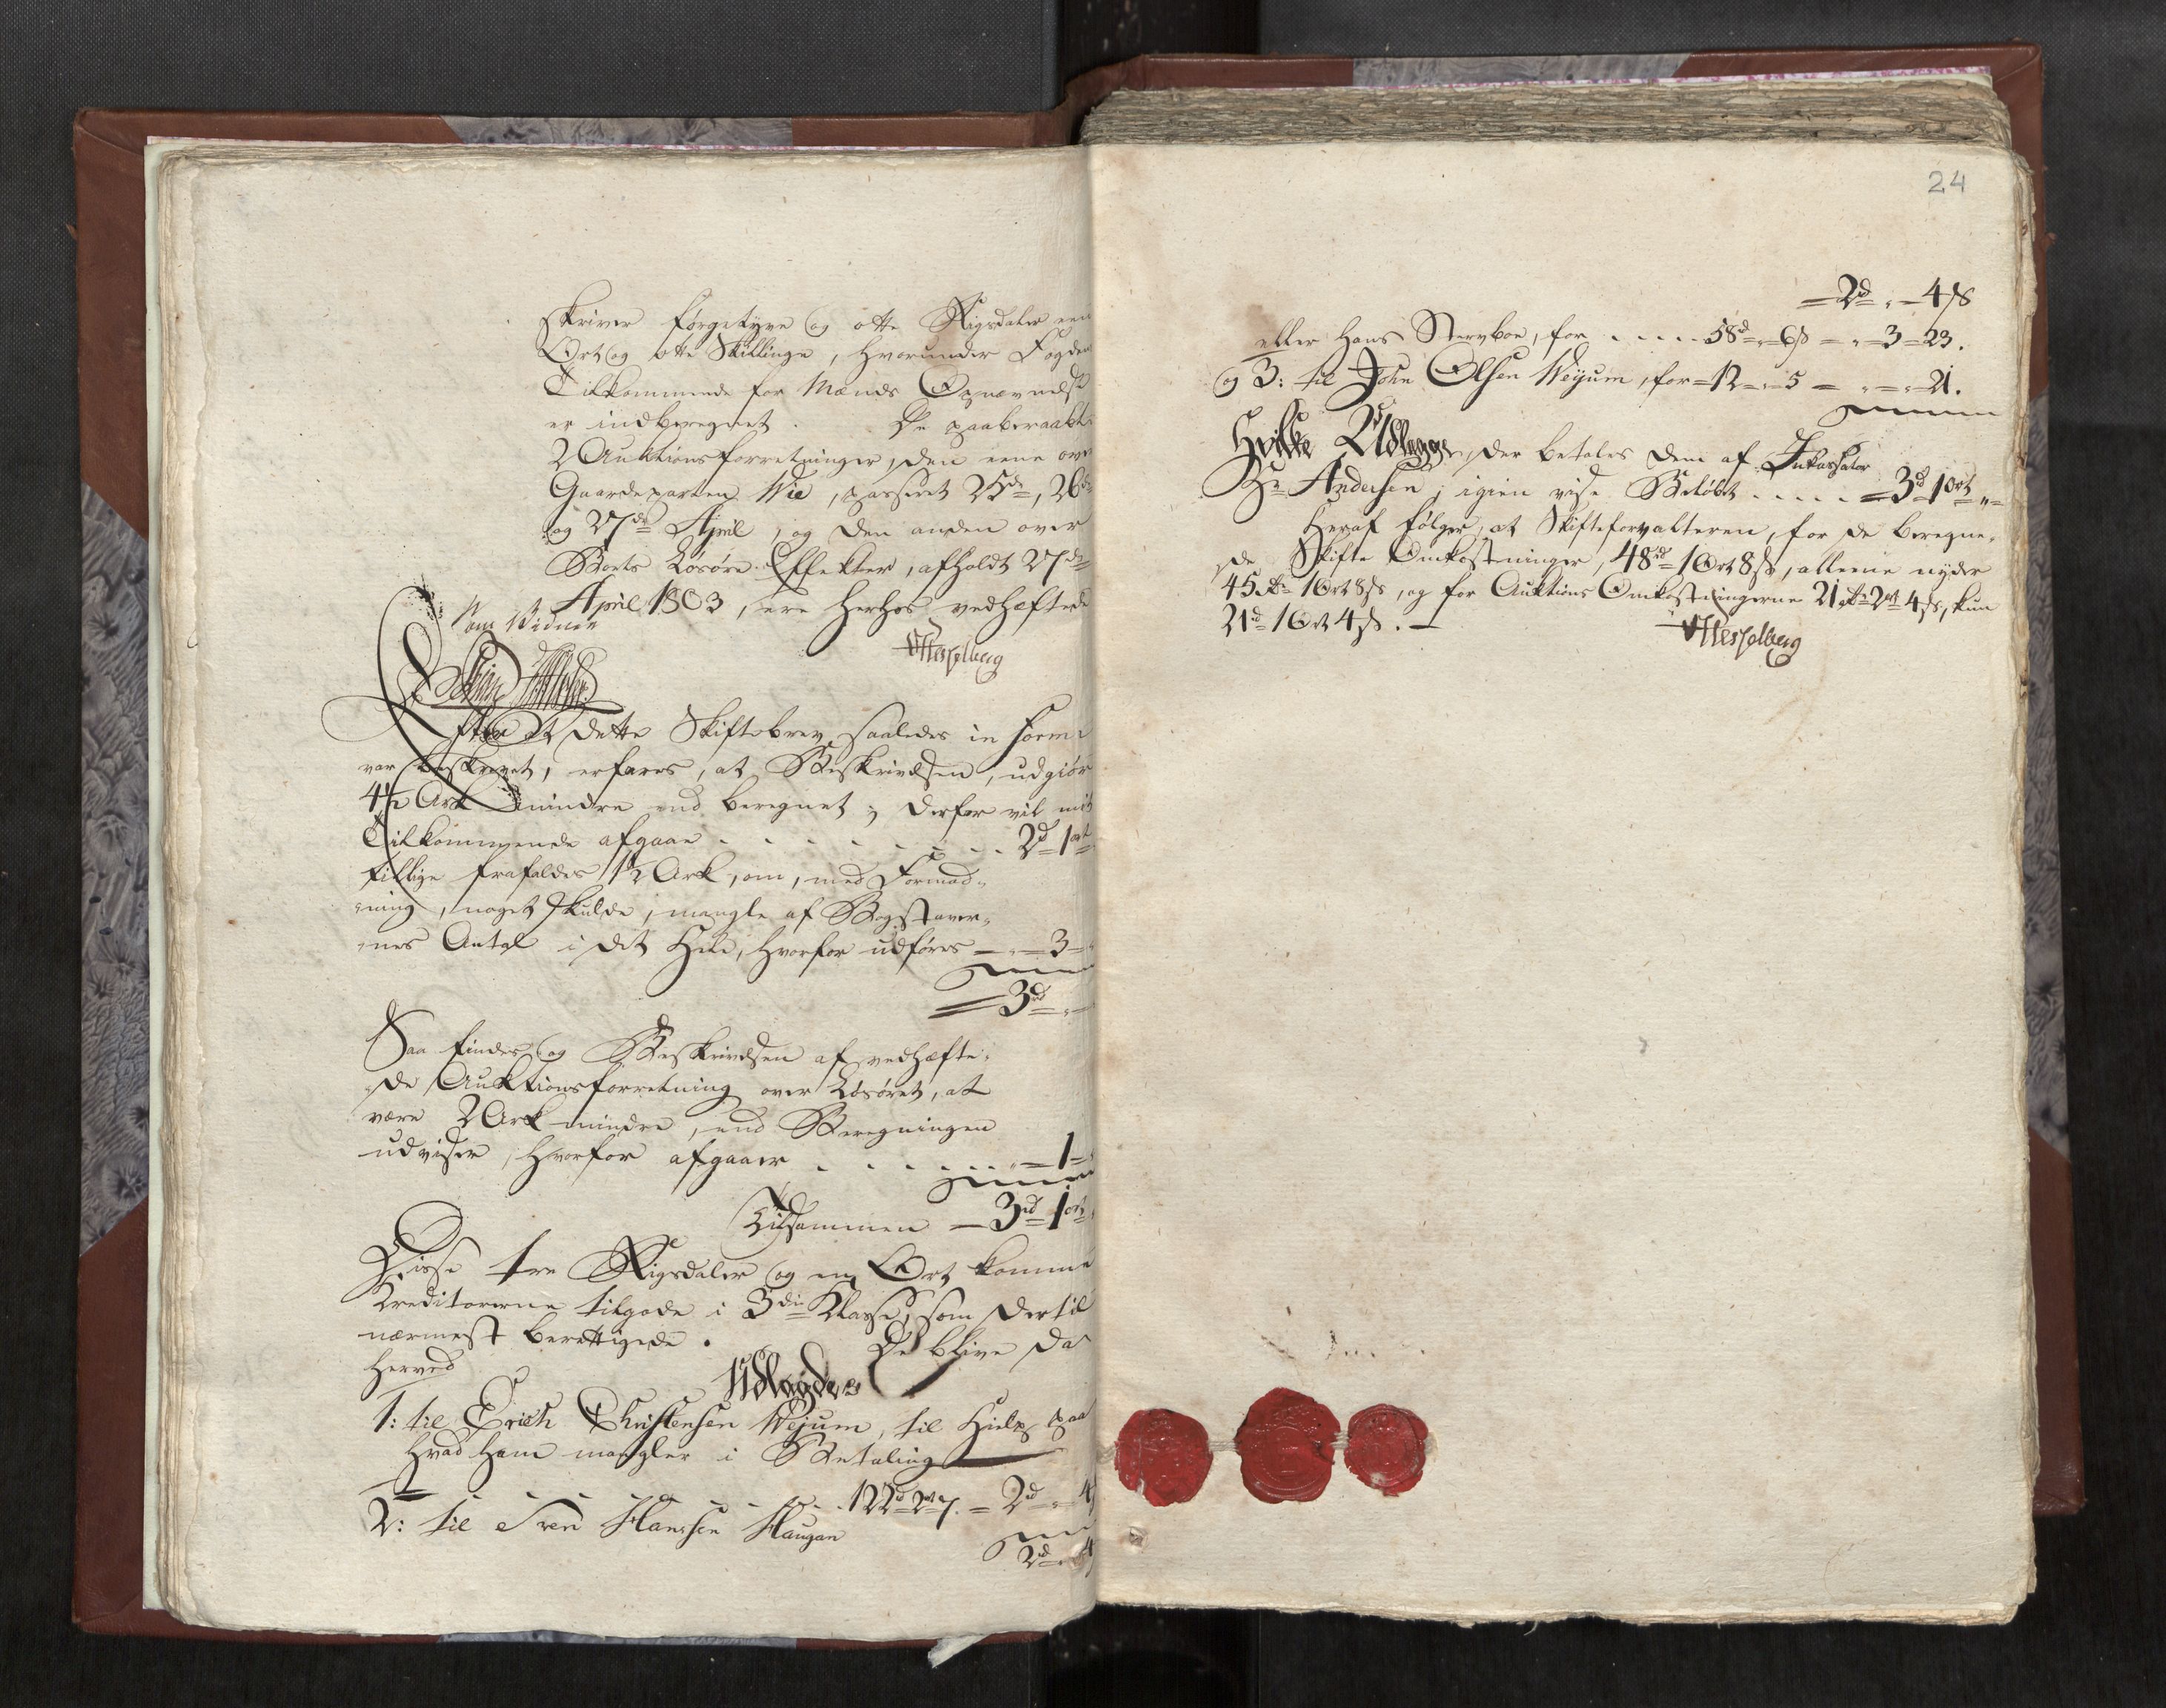 skriver førgetyve og otte Rigsdaler een
Ort og otte Skillinge, hvorunder Fogdens
Tilkommende for Mænds Opnævnelse
er indberegnet. De paaberaabte
2 Auktionsforretninger, den eene over
Gaardeparten Wie, passeret 25de, 26de
og 27de April, og den anden over
Boets Løsøre Effekter, afholdt 27de
April 1803, ere herhos vedhæftede
Som Vidner
Hesselberg
Efter at dette Skiftebrev saaledes in forma
var beskrevet, erfares, at Beskrivelsen, udgiør
4 1/2 Ark mindre end beregnet; derfor vil mit
Tilkommende afgaae . . . . . . . 2d 1ort
tillige frafaldes 1 1/2 Ark, om, med Formod-
ning, noget skulde, mangle af Bogstaver-
nes Antal i det Hele, hvorfor udføres — „ — 3 —
3rd „
Saa findes og Beskrivelsen af vedhæfte-
de Auktionsforretning over Løsøret, at
være 2 Ark mindre, end Beregningen
udviser, hvorfor afgaaer . . . . . . „ — 1 —
Tilsammen — 3rd 1ort
Disse tre Rigsdaler og en Ort komme
Kreditorerne tilgode i 3die Klasse, som dertil
nærmest berettigede. De blive da
herved
Udlagde
1: til Erich Christensen Wejum, til Hielp paa
hvad ham mangler i Betaling
. . . . . . . 122rd 2ort 7. = 2rd „ 4
2: til Sven Hanssen Haugan
2rd „ 4
24
2d „ 4 ß
eller Hans Stervboe, for . . . . . 58d „ 6 ß — „ — 3 — 23.
og 3: til John Olsen Weijum, for — 12 — „ — 5 — „ — „ — 21.
Hvilke Udlægge, der betales dem af Inkassator
Hr Andersen, igien vise Beløbet . . . . . — 3d 1ort „
Heraf følger, at Skifteforvalteren, for de beregne-
de Skifte Omkostninger, 48rd 1 Ort 8 ß, alleene nyder
45rd 1 Ort 8 ß, og for Auktions Omkostningerne 21rd 2ort 4 ß, kun
21d 1 Ort 4 ß. —
Hesselberg